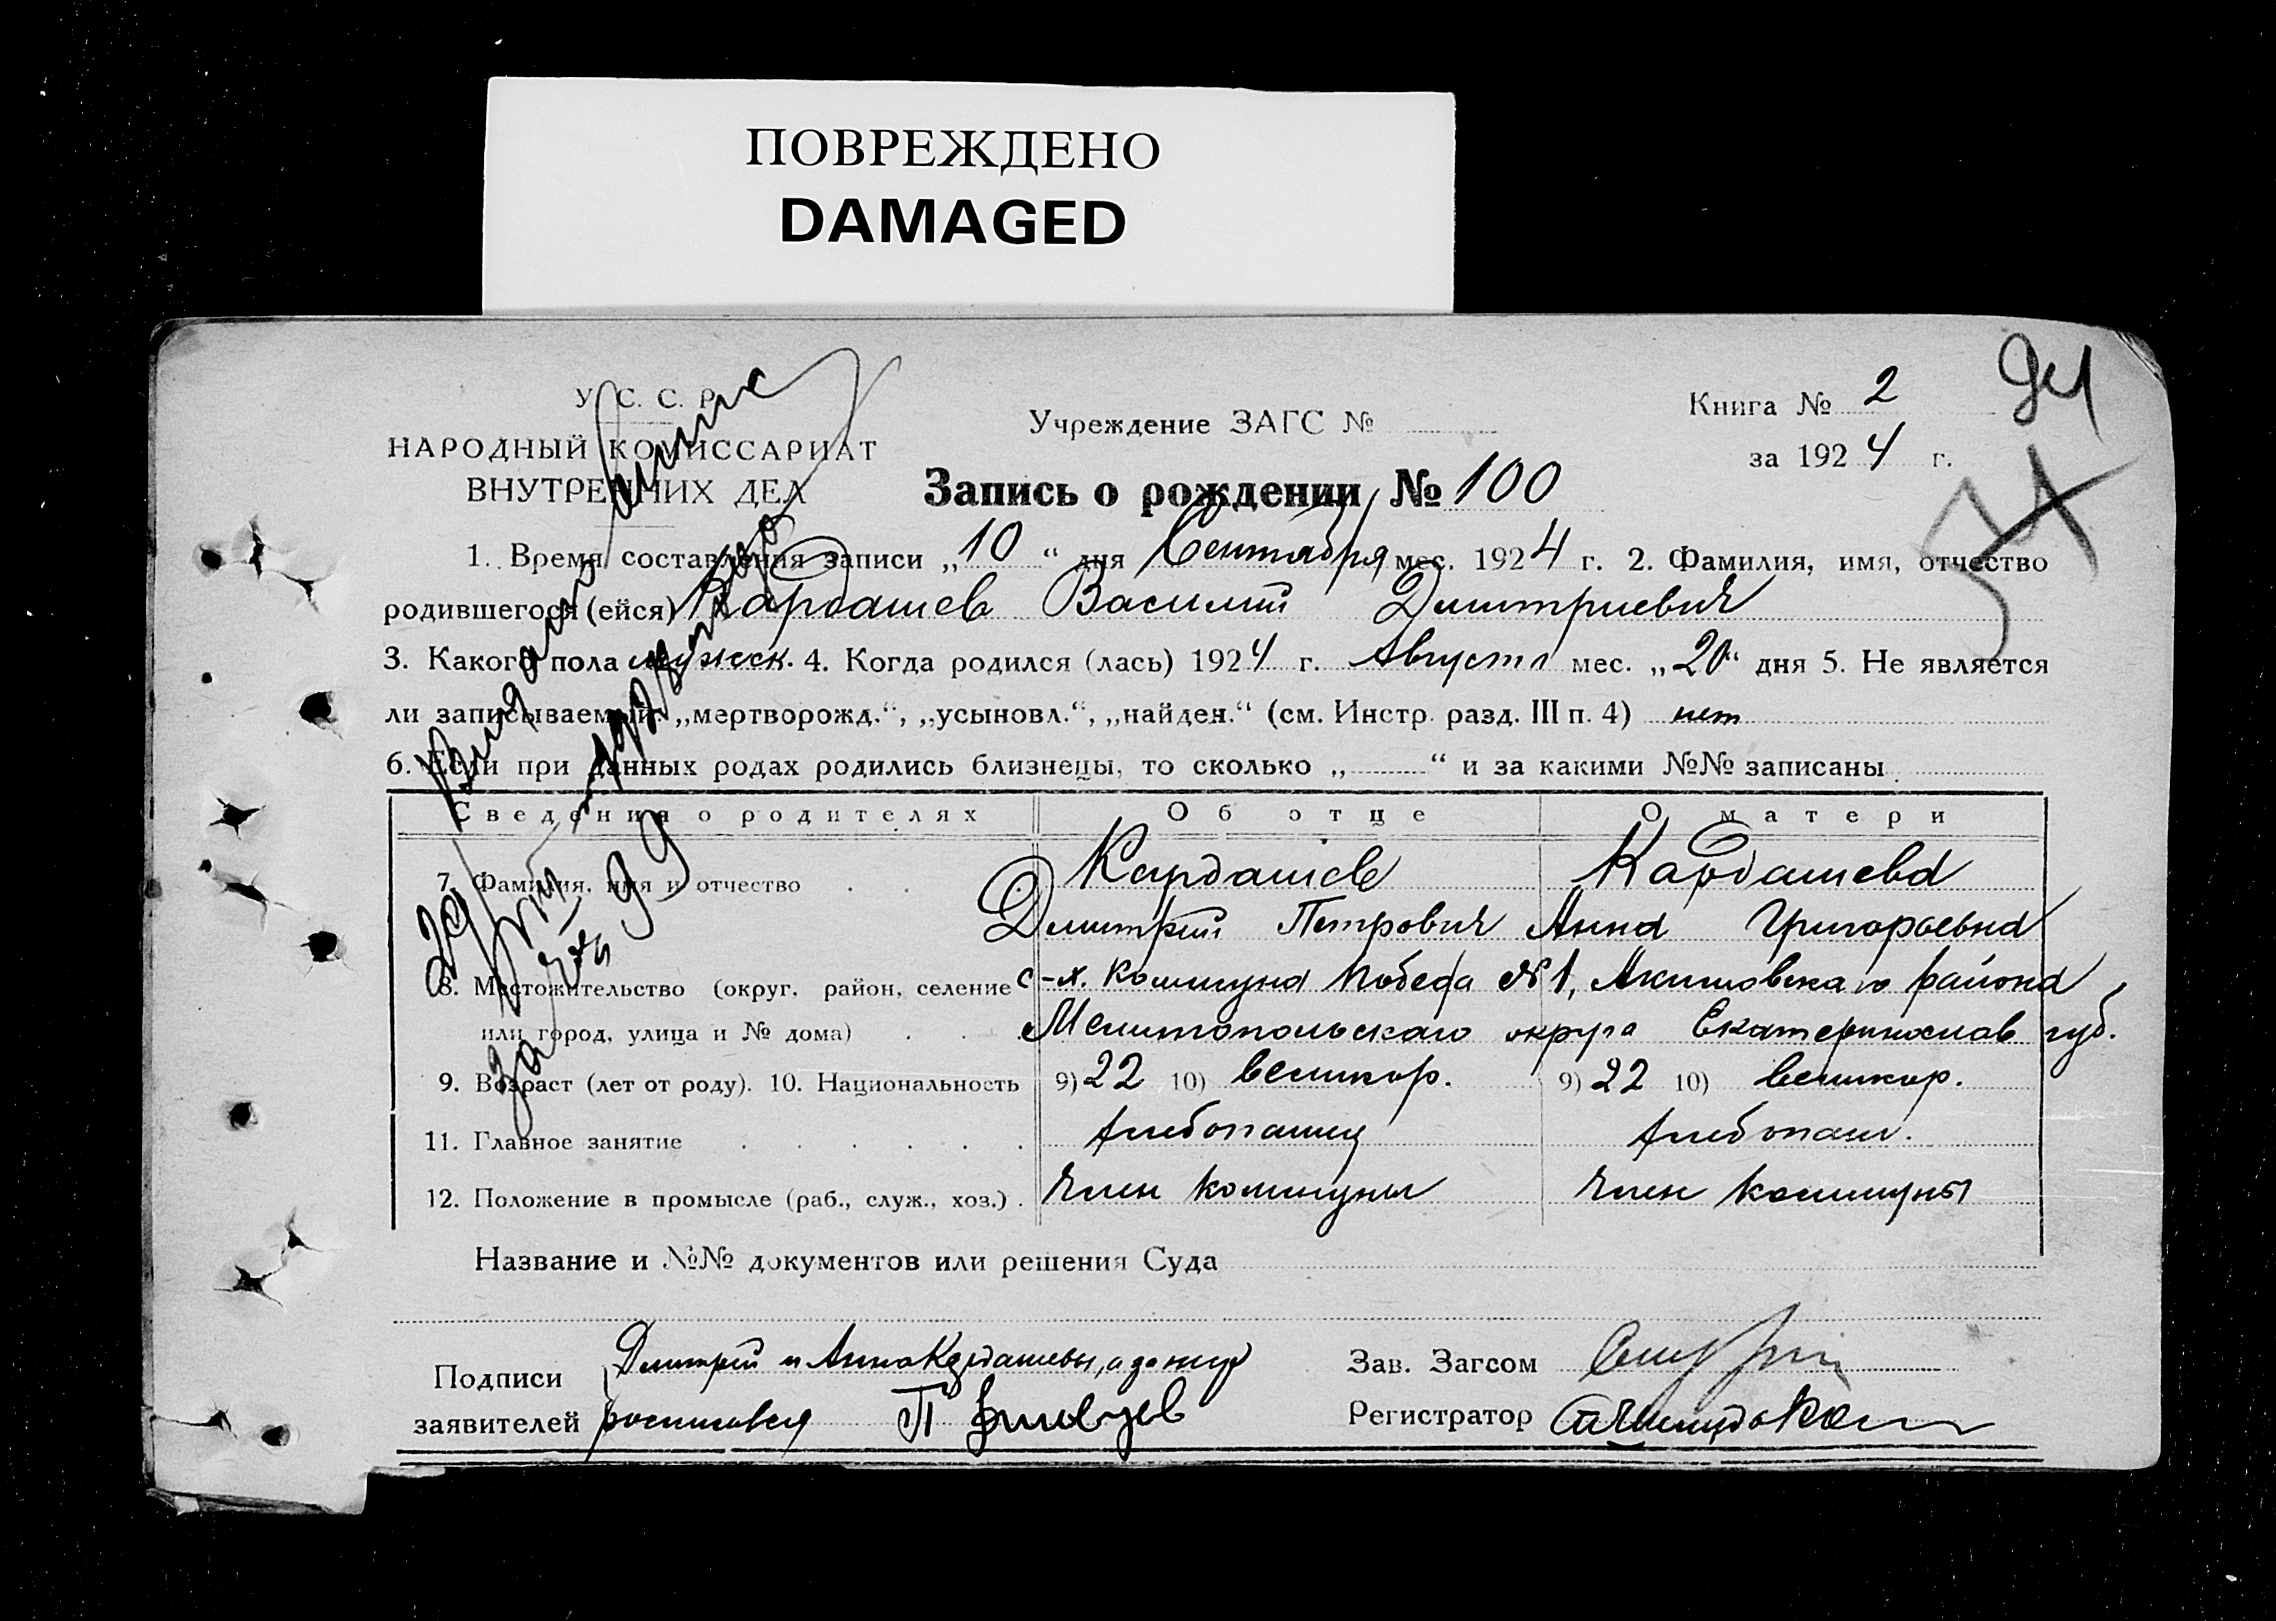 ПОВРЕЖДЕНО
DAMAGED
У. С. С. Р.
НАРОДНЫЙ КОМИССАРИАТ
ВНУТРЕННИХ ДЕЛ
Учреждение ЗАГС №
Книга № 2
за 1924 г.
94
Запись о рождении № 100
1. Время составления записи „10“ дня Сентября мес. 1924 г. 2. Фамилия, имя, отчество
родившегося (ейся) Кардашев Василий Дмитриевич
3. Какого пола мужск. 4. Когда родился (лась) 1924 г. Августа мес. „20“ дня 5. Не является
ли записываемый: „мертворожд.“, „усыновл.“, „найден.“ (см. Инстр. разд. III п. 4) нет
6. Если при данных родах родились близнецы, то сколько „ “ и за какими №№ записаны
Сведения о родителях Об отце О матери
7. Фамилия, имя и отчество Кардашев Кардашева
Дмитрий Петрович Анна Григорьевна
8. Местожительство (округ, район, селение с-х. Коммуна Победа №1, Акимовскаго района
или город, улица и № дома) Мелитопольскаго округа Екатеринослав губ.
9. Возраст (лет от роду). 10. Национальность 9) 22 10) великор. 9) 22 10) великор.
11. Главное занятие хлебопашец хлебопаш.
12. Положение в промысле (раб., служ., хоз.) Член коммуны Член коммуны
Название и №№ документов или решения Суда
Подписи Дмитрий и Анна Кардашевы, а за них
Зав. Загсом
заявителей росписался П
Регистратор